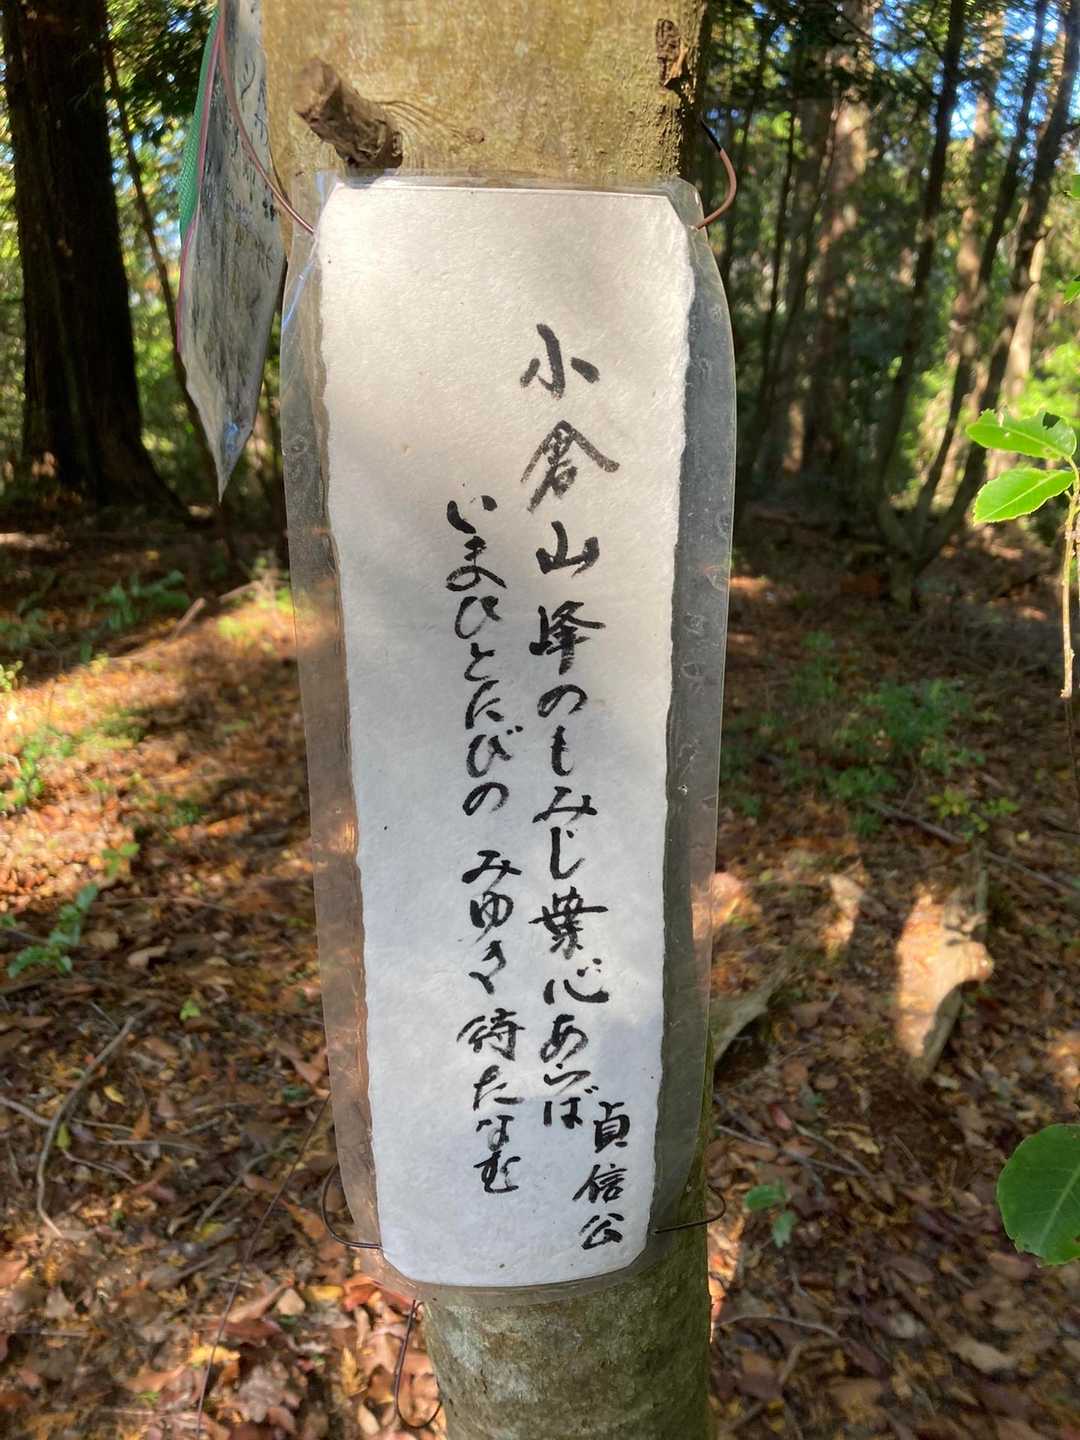 小倉山峰のもみじ葉心あらば
貞信公
いまひとたびの みゆき待たなむ